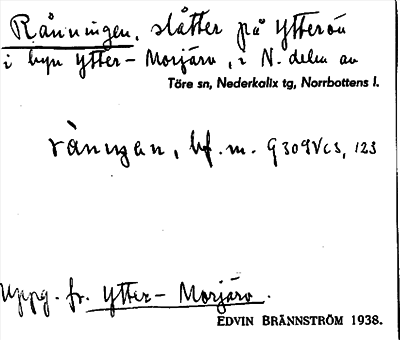 Råningen, slåtter på Ytterön
i byn Ytter-Morjärv, i N. delen av
Töre sn, Nederkalix tg, Norrbottens l.
råningen, bf. m. G309VC3, 123
Uppg. fr. Ytter-Morjärv.
EDVIN BRÄNNSTRÖM 1938.